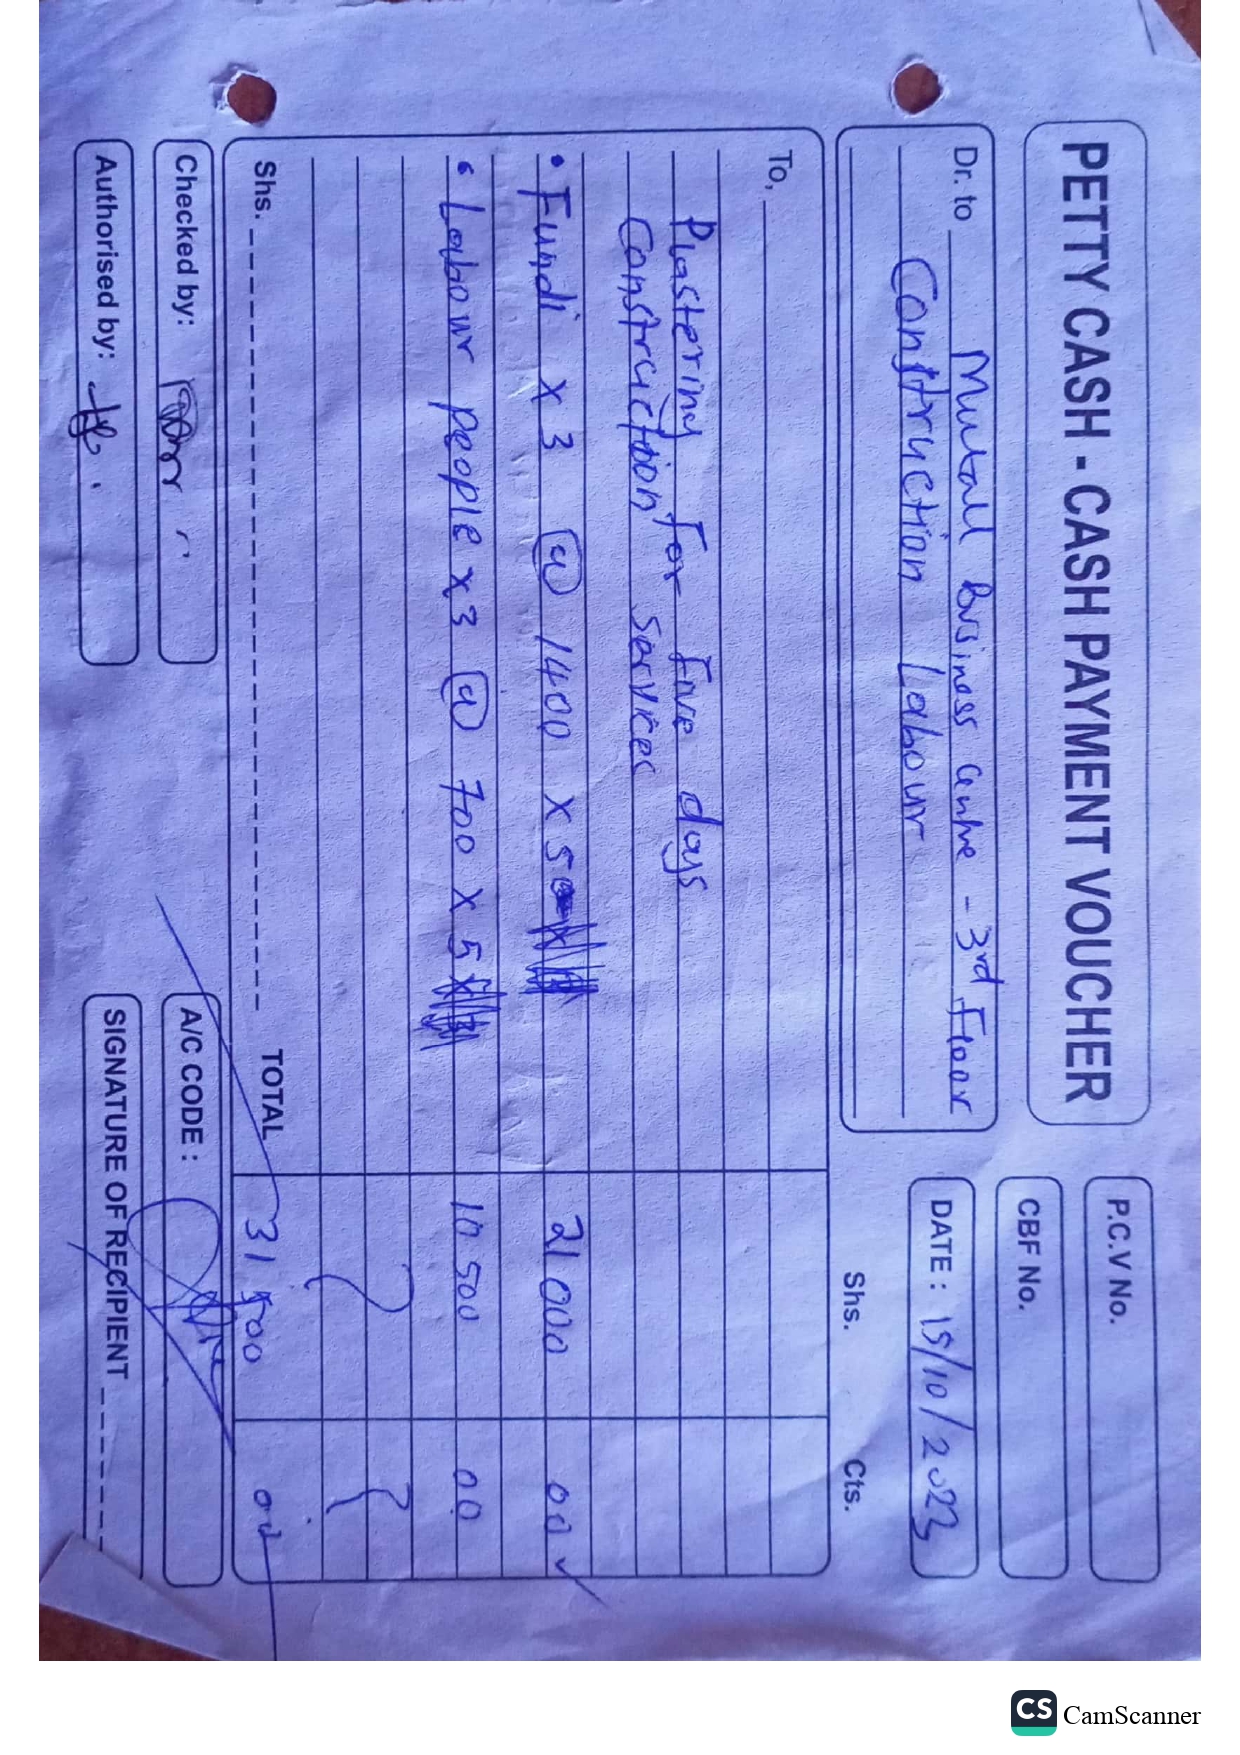 PETTY CASH - CASH PAYMENT VOUCHER
P.C.V No.
CBF No.
Dr. to Mutall Business centre - 3rd Floor
Construction Labour
DATE : 15/10/2023
Shs. Cts.
To,
Plastering For Five days
Construction services
• Fundi x 3 @ 1400 x 5 21 000 00
• Labour people x3 @ 700 x 5 10 500 00
Shs. TOTAL 31 500 00
Checked by:
A/C CODE :
Authorised by:
SIGNATURE OF RECIPIENT
CS CamScanner